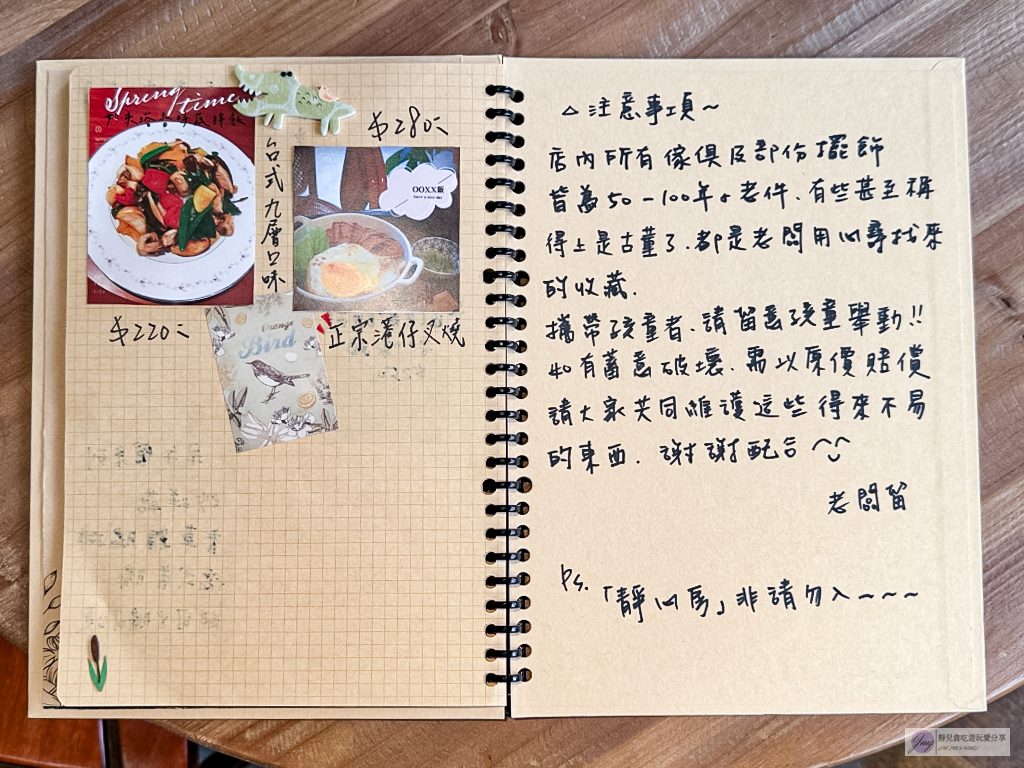 Spring time
台式九層口味
$220元
$280元
OOXX飯
have a nice day
正宗港仔叉燒
Orange
Bird
△注意事項~
店內所有傢俱及部份擺飾
皆為50-100年の老件、有些甚至稱
得上是古董了、都是老闆用心尋找來
的收藏.
攜帶孩童者、請留意孩童舉動!!
如有蓄意破壞、需以原價賠償
請大家共同維護這些得來不易
的東西. 謝謝配合^◡^
老闆留
Ps.「靜心房」非請勿入~~~~
Jing
靜兒貪吃遊玩愛分享